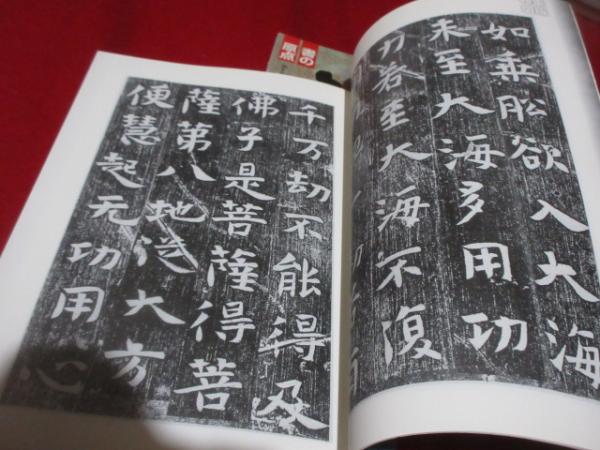 書の
原点
如乗舩欲入大海
未至大海多用功
力若至大海不復
千万劫不能得及
佛子是菩薩得菩
薩第八地従大方
便慧起无功用心